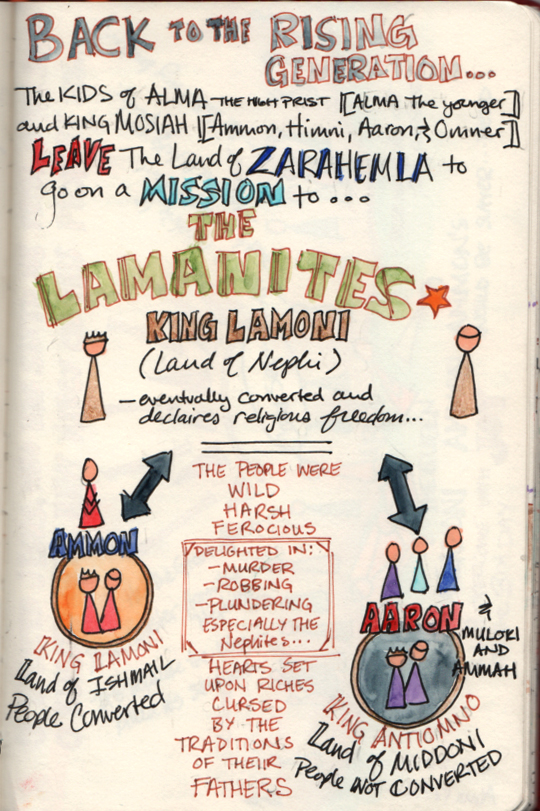 BACK TO THE RISING
GENERATION...
The KIDS of ALMA - THE HIGH PRIST [[ALMA The younger]]
and KING MOSIAH [[Ammon, Himni, Aaron, & Omner]]
LEAVE The Land of ZARAHEMLA to
go on a MISSION to...
THE
LAMANITES
KING LAMONI
(Land of Nephi)
- eventually converted and
declaires religious freedom...
THE PEOPLE WERE
WILD
HARSH
FEROCIOUS
DELIGHTED IN:
- MURDER
- ROBBING
- PLUNDERING
ESPECIALLY THE
Nephites...
HEARTS SET
UPON RICHES
CURSED
BY THE
TRADITIONS
OF THEIR
FATHERS
AMMON
KING LAMONI
Land of ISHMAIL
People Converted
AARON &
MULOKI
AND
AMMAH
KING ANTIOMNO
Land of MIDDONI
People NOT CONVERTED